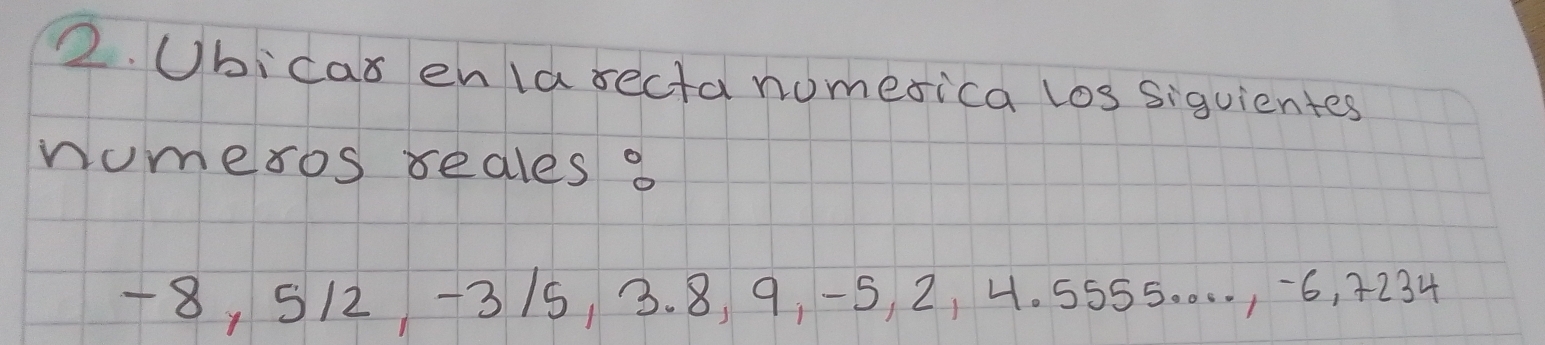 2. Ubicar en la recta numerica los siguientes
numeros reales :
-8, 5/2, -3/5, 3.8, 9, -5,2, 4.5555...., -6,7234